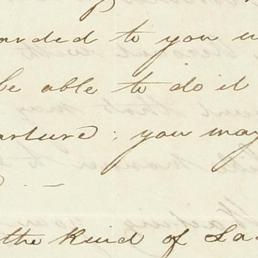 orded to you u
be able to do it
arture; you may
the kind of La